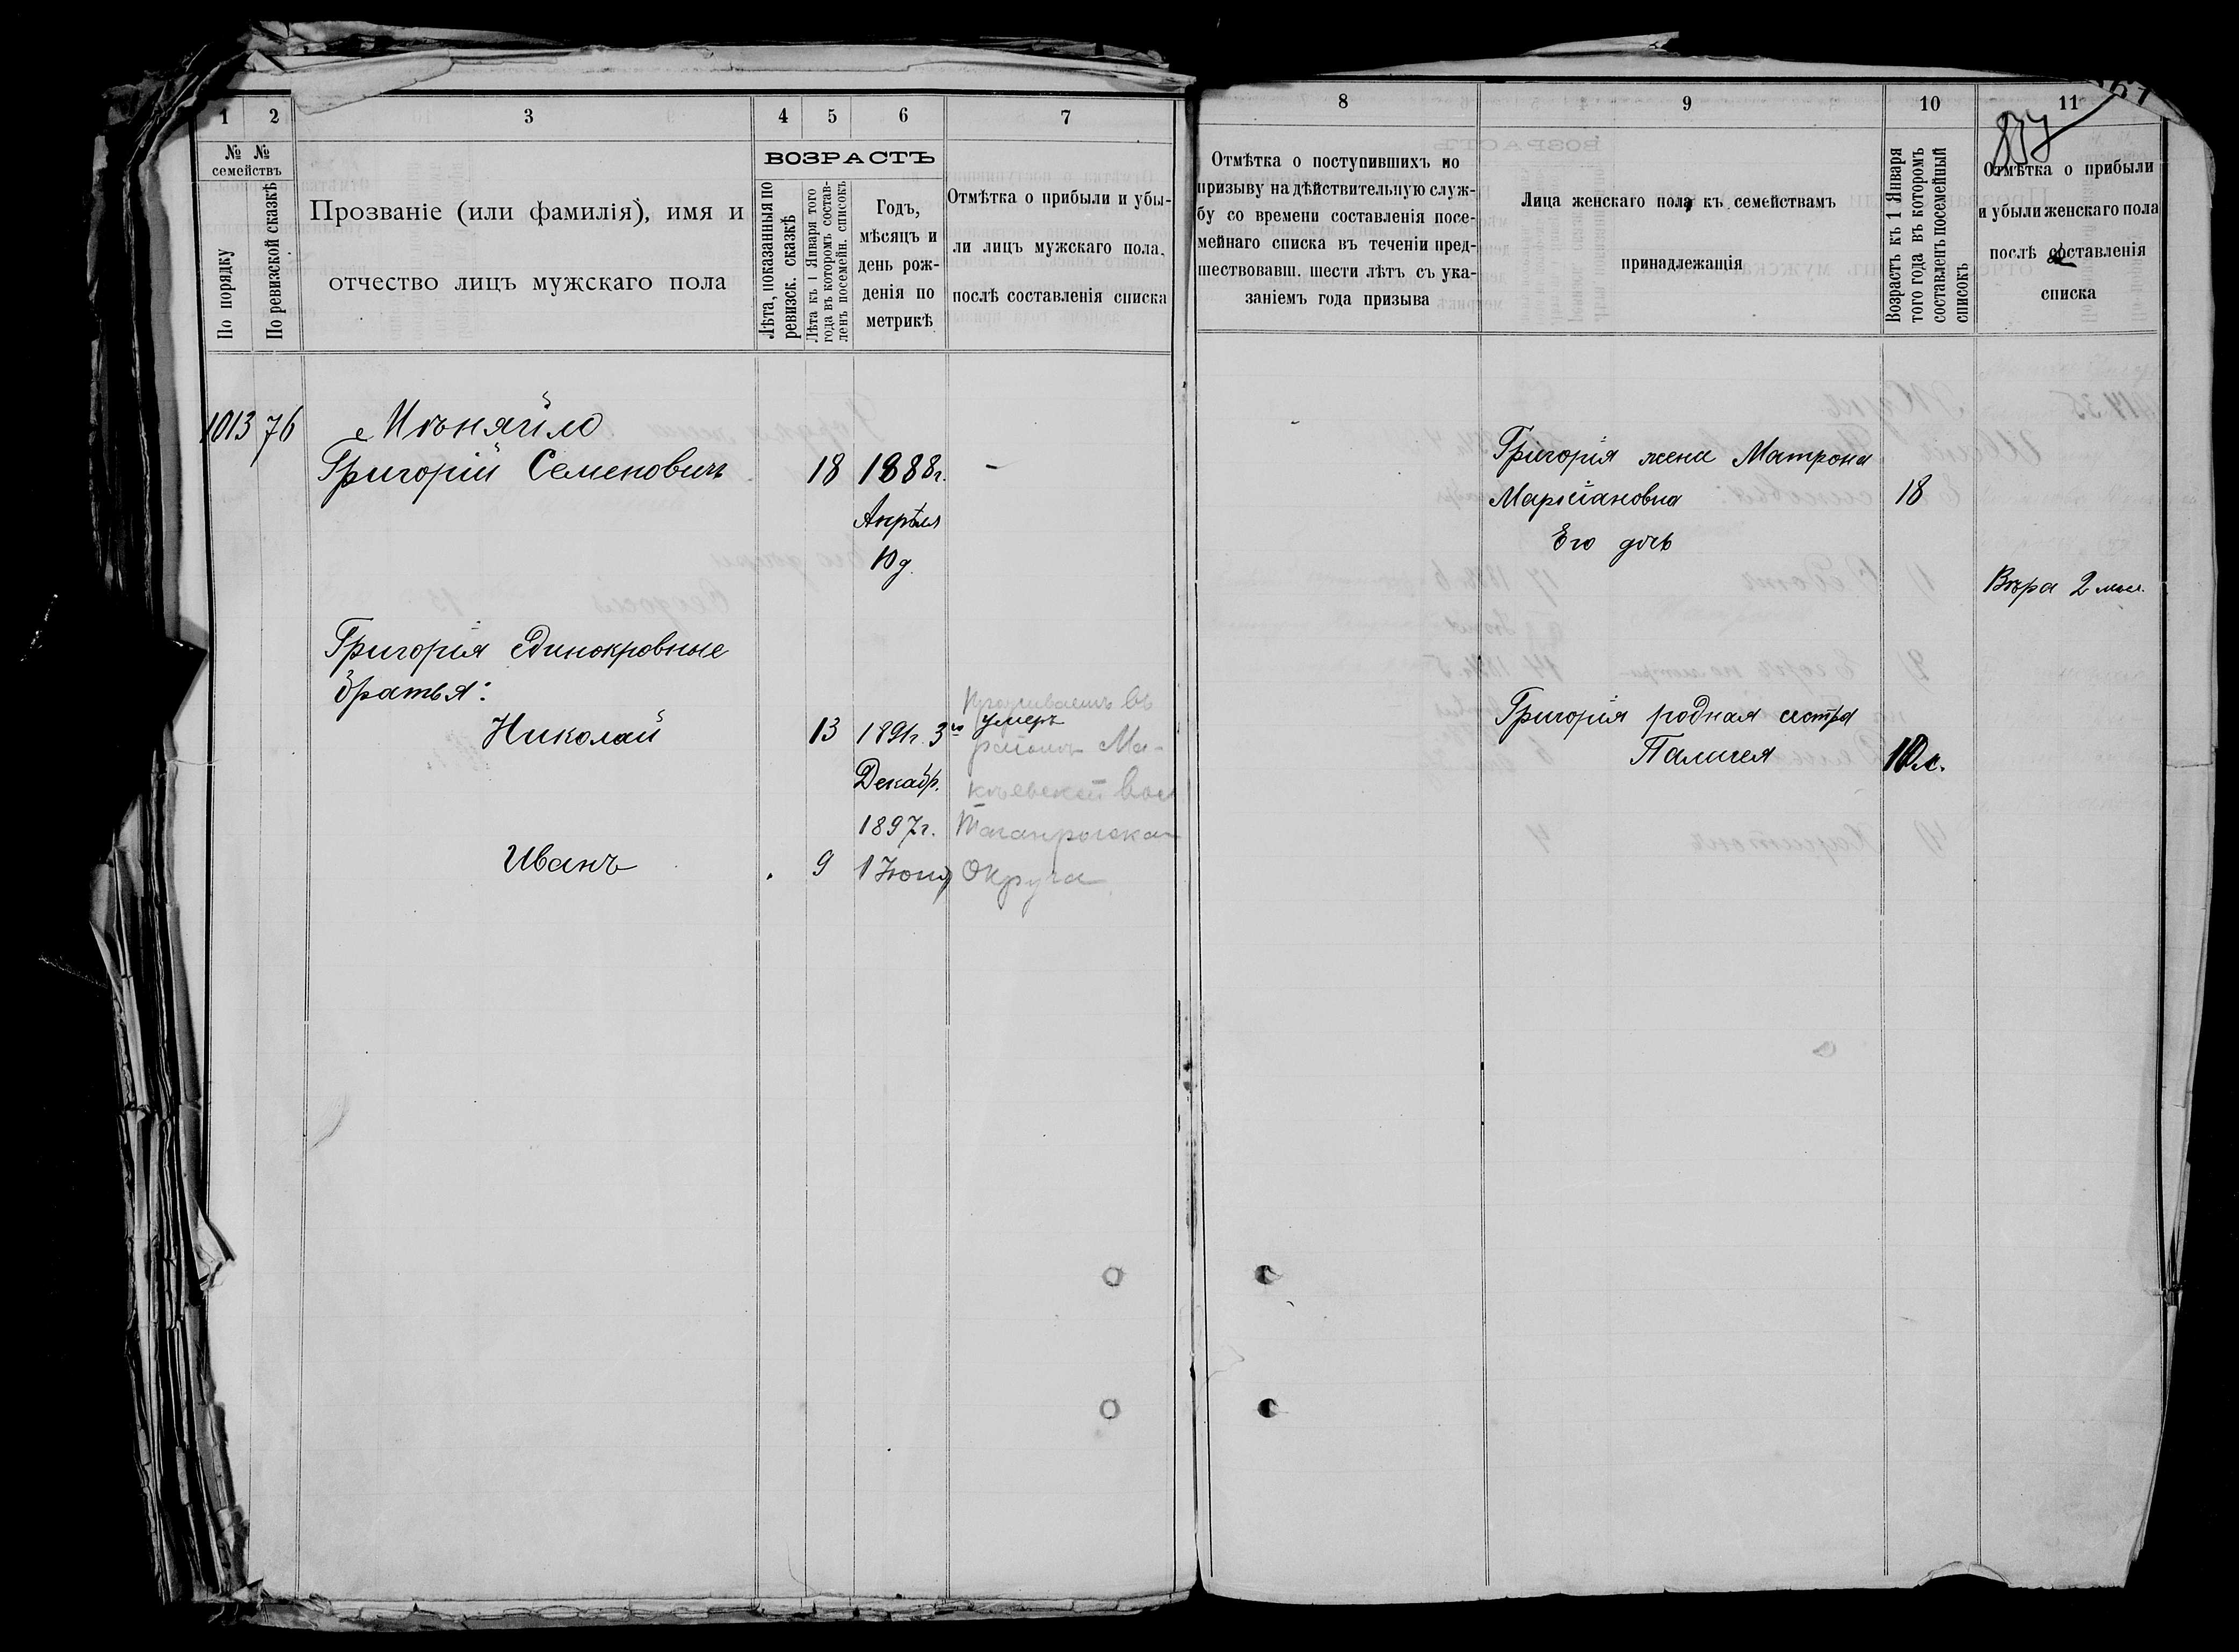 1 2 3 4 5 6 7
№ № семействъ
По порядку
По ревизской сказкѣ
Прозваніе (или фамилія), имя и
отчество лицъ мужскаго пола
ВОЗРАСТЪ
Лѣта, показанныя по
ревизск. сказкѣ
Лѣта къ 1 Января того
года въ которомъ состав-
ленъ посемейн. списокъ
Годъ,
мѣсяцъ и
день рож-
денія по
метрикѣ
Отмѣтка о прибыли и убы-
ли лицъ мужскаго пола,
послѣ составленія списка
1013 76 Мѣняйло
Григорій Семеновичъ 18 1888г. —
Апрѣля
10 д.
Григорія единокровные
братья:
Проживаетъ въ
Николай 13 1891г. 3го умеръ
районѣ Ма-
Декабр. кѣевской Вол
1897г. Таганрогскаго
Иванъ 9 1 Іюня Округа
8 9 10 11
837
Отмѣтка о поступившихъ по
призыву на дѣйствительную служ-
бу со времени составленія посе-
мейнаго списка въ теченіи пред-
шествовавш. шести лѣтъ съ ука-
заніемъ года призыва
Лица женскаго пола къ семействамъ
принадлежащія
Возрастъ къ 1 Января
того года въ которомъ
составленъ посемейный
списокъ
Отмѣтка о прибыли
и убыли женскаго пола
послѣ составленія
списка
Григорія жена Матрона
Маркіановна 18
Его дочь
Вѣра 2 мѣс.
Григорія родная сестра
Палигея 10 л.